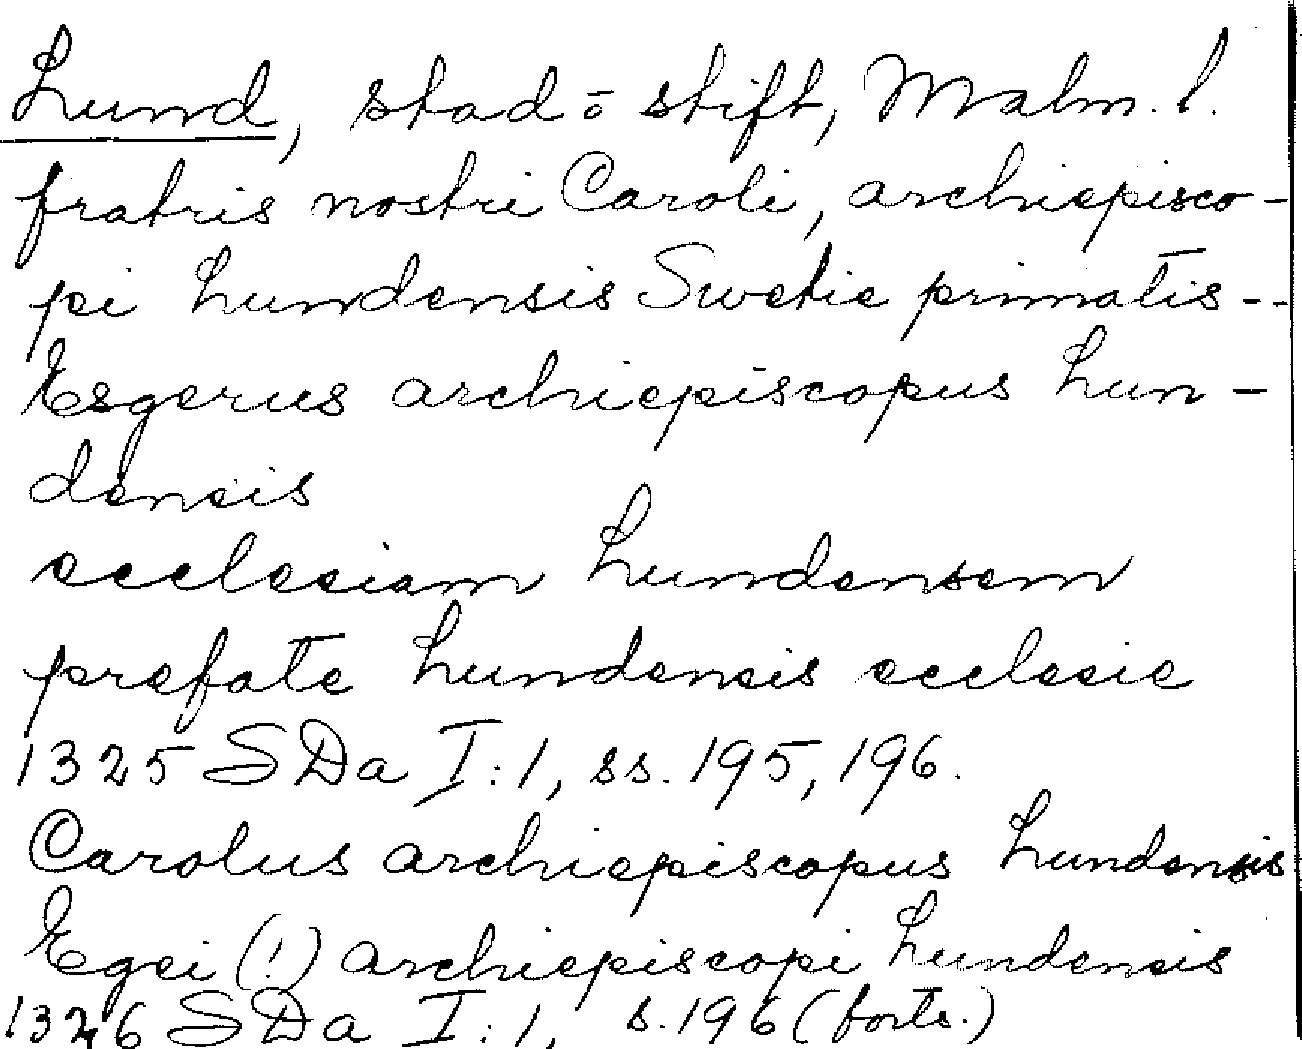 Lund, stad ō stift, Malm. l.
fratris nostri Caroli, archiepisco-
pi Lundensis Swetie primatis--
Esgerus archiepiscopus Lun-
densis
ecclesiam Lundensem
prefate Lundensis ecclesie
1325 SDa I:1, ss. 195, 196.
Carolus archiepiscopus Lundensis
Egei (!) archiepiscopi Lundensis
1326 SDa I:1, s. 196 (forts.)